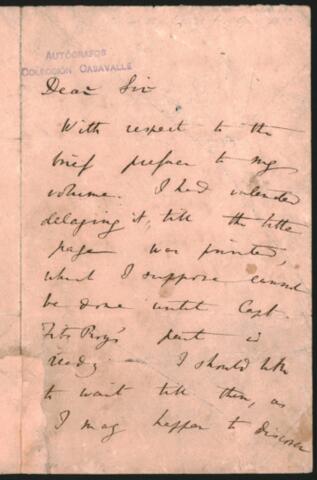 AUTÓGRAFOS
COLECCIÓN CASAVALLE
Dear Sir
With respect to the
brief preface to my
volume. I had intended
delaying it, till the title
page was printed,
which I suppose cannot
be done until Capt.
FitzRoy's part is
ready I should like
to wait till then, as
I may happen to discover